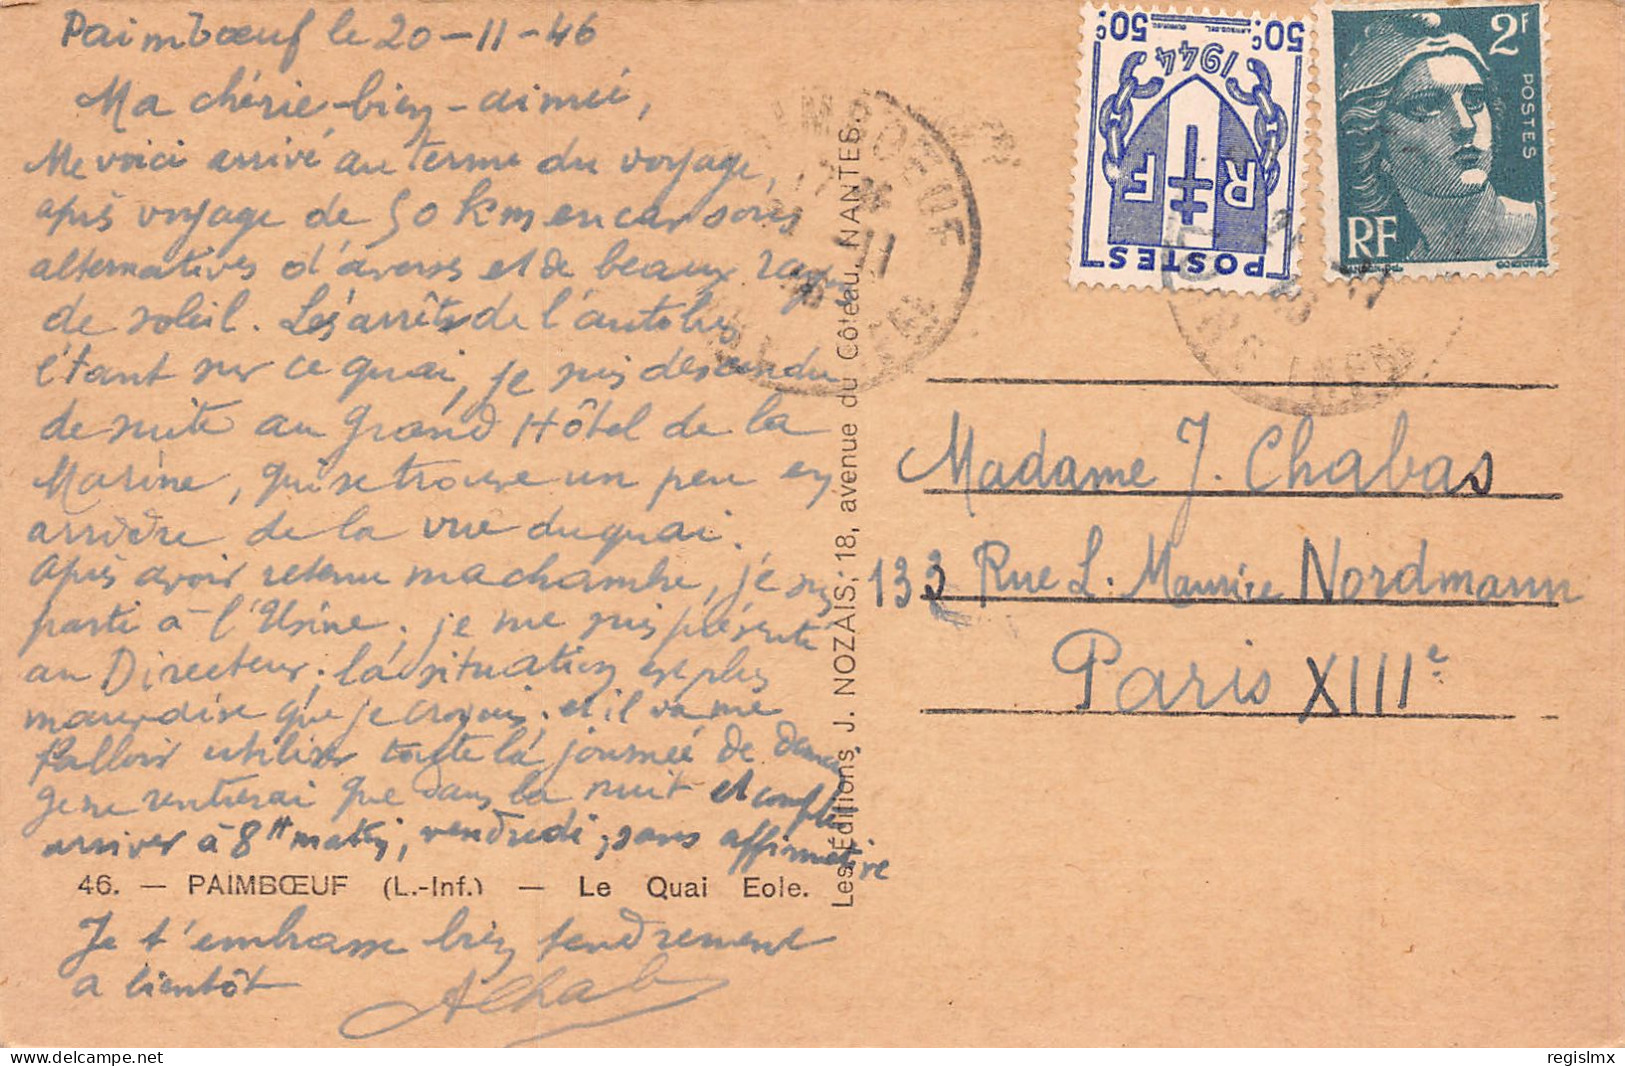 Paimbœuf le 20-11-46
Ma chérie bien-aimée,
Me voici arrivé au terme du voyage,
après voyage de 50 km en car sous
alternatives d'averses et de beaux rayons
de soleil. Les arrêts de l'autobus
étant sur ce quai, je suis descendu
de suite au Grand Hôtel de la
Marine, qui se trouve un peu en
arrière de la vue du quai.
Après avoir retenu ma chambre, je suis
parti à l'Usine, je me suis présenté
au Directeur; la situation est plus
mauvaise que je croyais, et il va me
falloir utiliser toute la journée de demain
je ne rentrerai que dans la nuit et compte
arriver à 8H matin, vendredi, sans affirmative
46. — PAIMBŒUF (L.-Inf.) — Le Quai Eole.
Je t'embrasse bien tendrement
a bientôt
AChab
Les Éditions J. NOZAIS, 18, avenue du Côteau, NANTES.
50c 50c
1944
RF
POSTES
2F
POSTES
RF
PAIMBOEUF
17 *
11
46
Madame J. Chabas
133 Rue L. Maurice Nordmann
Paris XIIIe
regislmx
www.delcampe.net